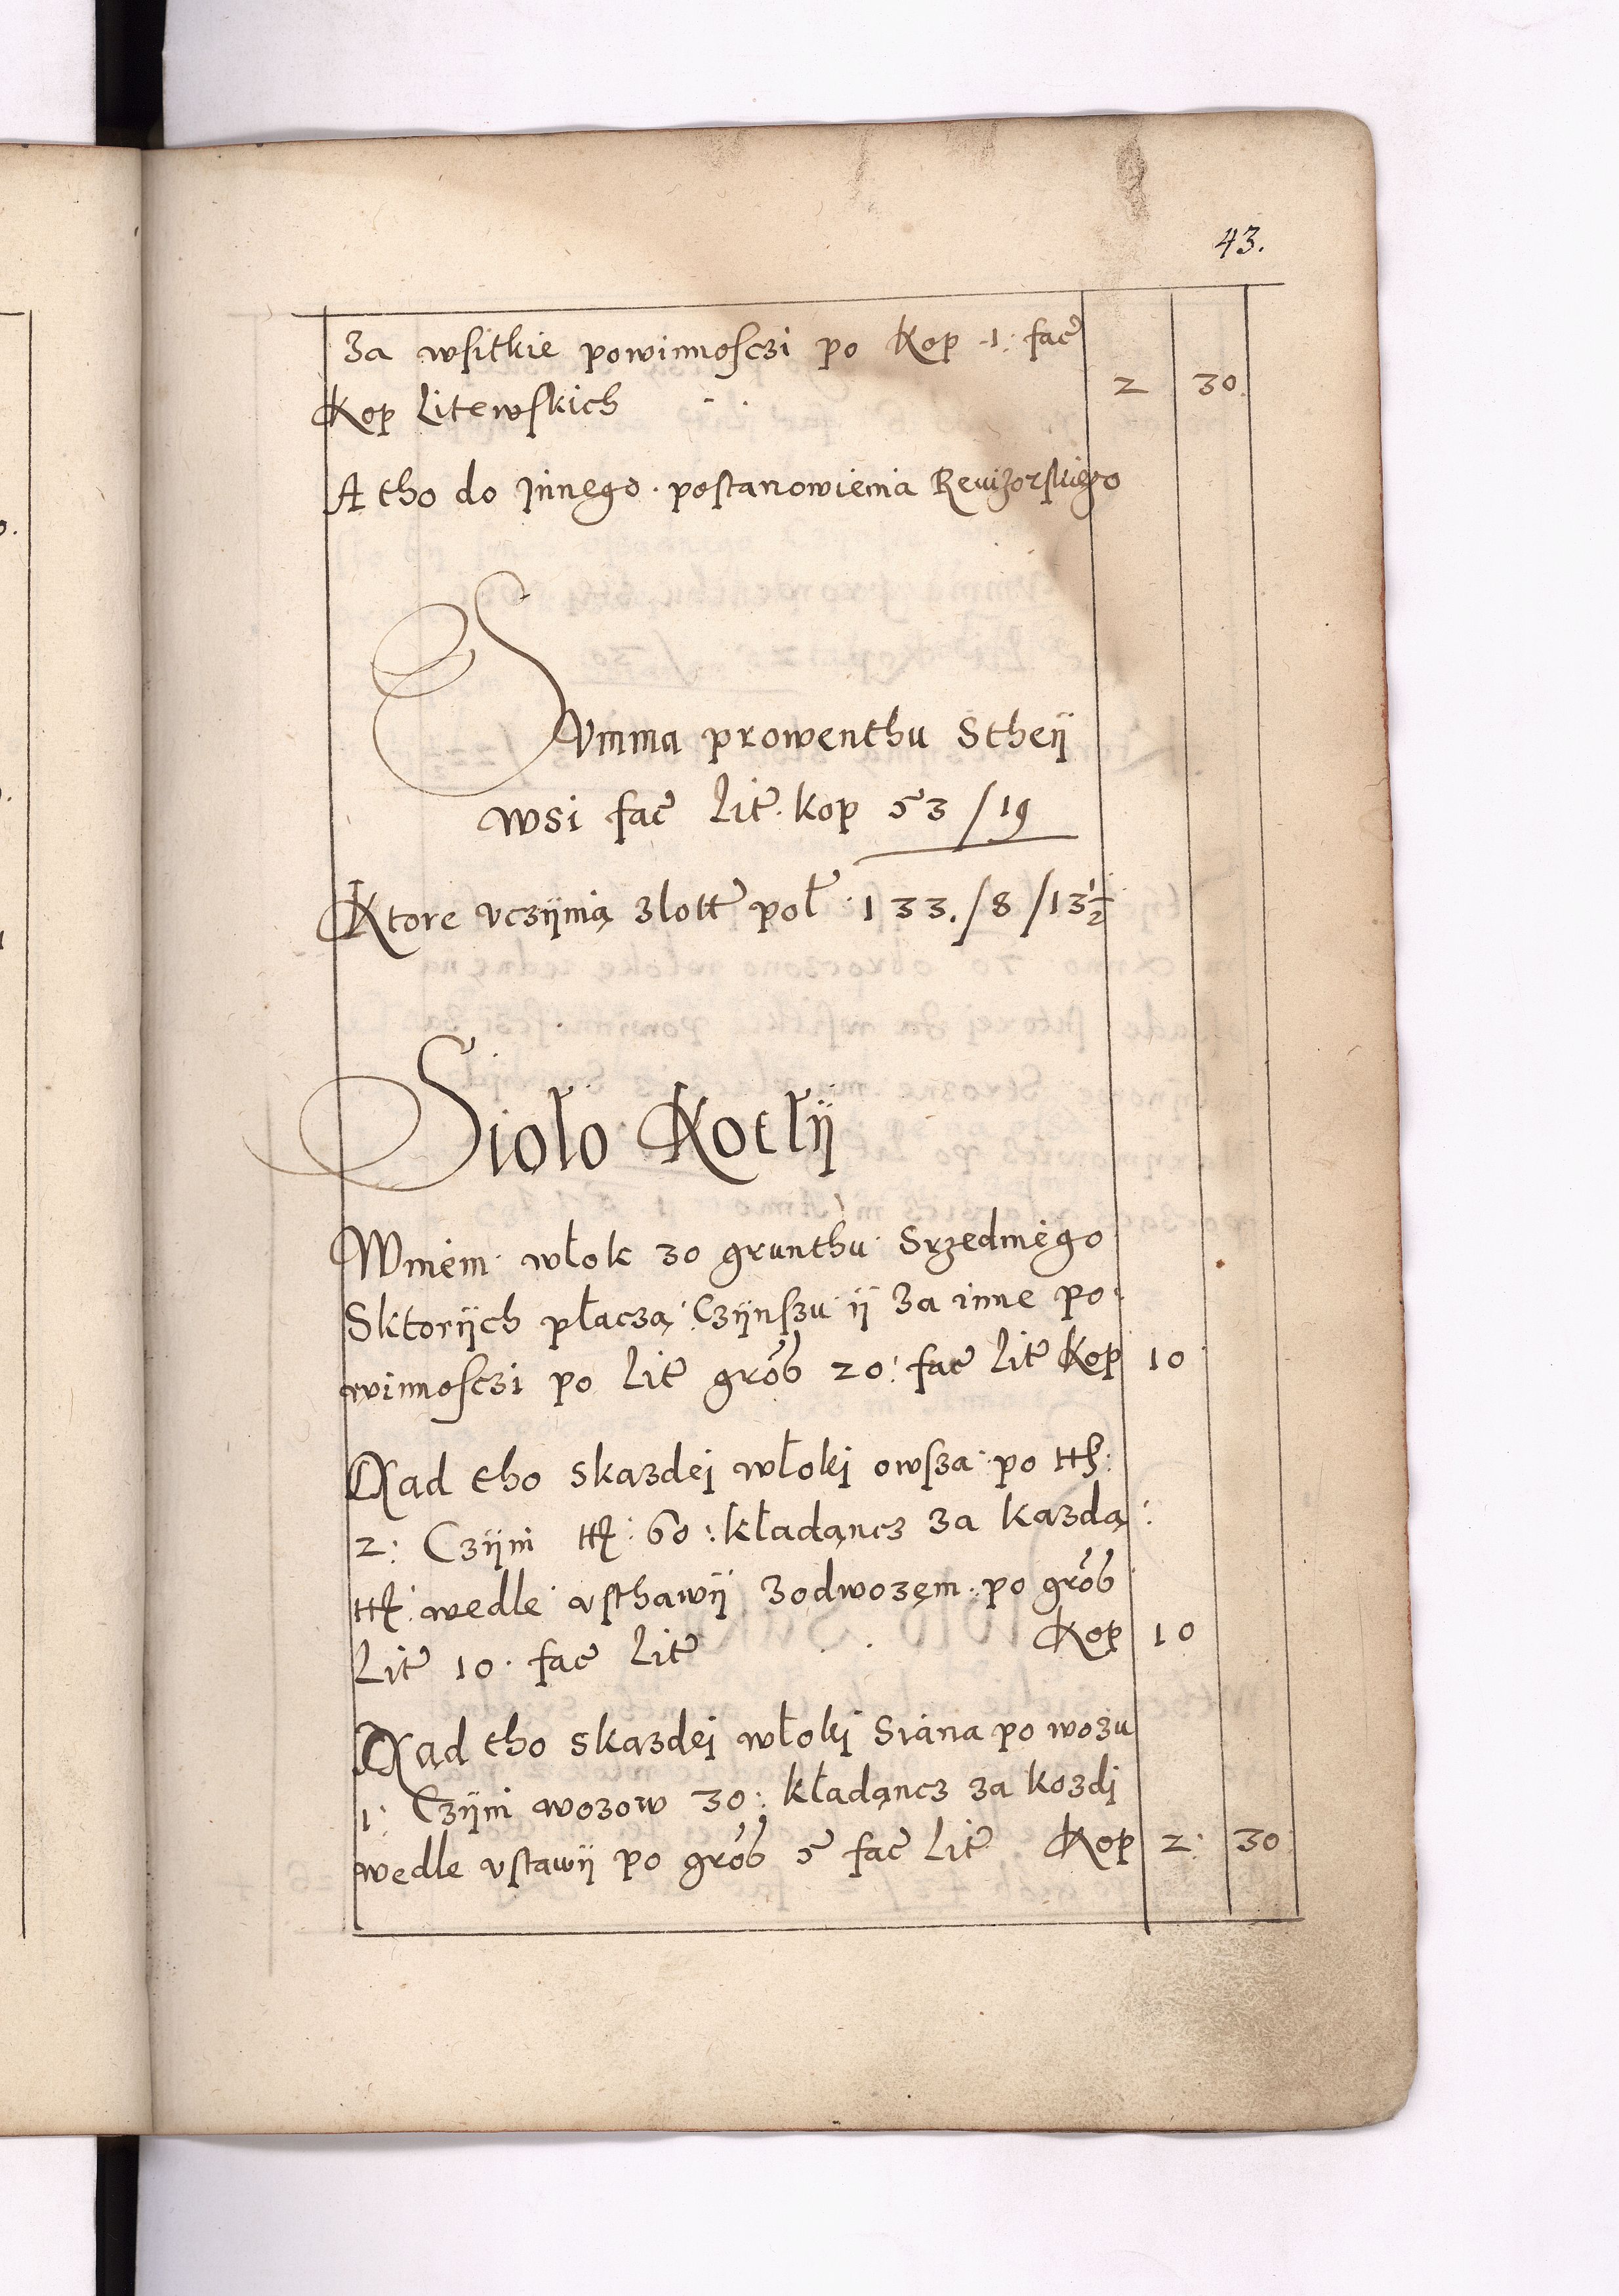 43.
Za wsitkie powinnosczi po Kop 1: fac̃
Kop Litewskich 2 30.
A tho do Jnnego postanowienia Rewizorskiego
Summa prowenthu Stheÿ
wsi fac̃ Lit̃ kop 53 / 19
Ktore vczÿnią zlott̃ pol̃ 133. / 8 / 13½
Sioło Kotłÿ
Wniem włok 30 grunthu Srzedniego
Sktorÿch płaczą Czÿnszu ÿ za inne po
winnosczi po Lit̃ gro͠b 20: fac̃ Lit̃ Kop 10
Nad tho skazdej włokj owsza po tt̃:
2: Czÿni tt̃: 60: kładąncz za kazdą
tt̃: wedle vsthawÿ zodwozem po gro͠b
Lit̃ 10. fac̃ Lit̃ Kop 10
Nad tho skazdej włokj Siana po wozu
1: Czÿni wozow 30: kładąncz za kozdj
wedle vstawÿ po gro͠b 5 fac̃ Lit̃ Kop 2: 30